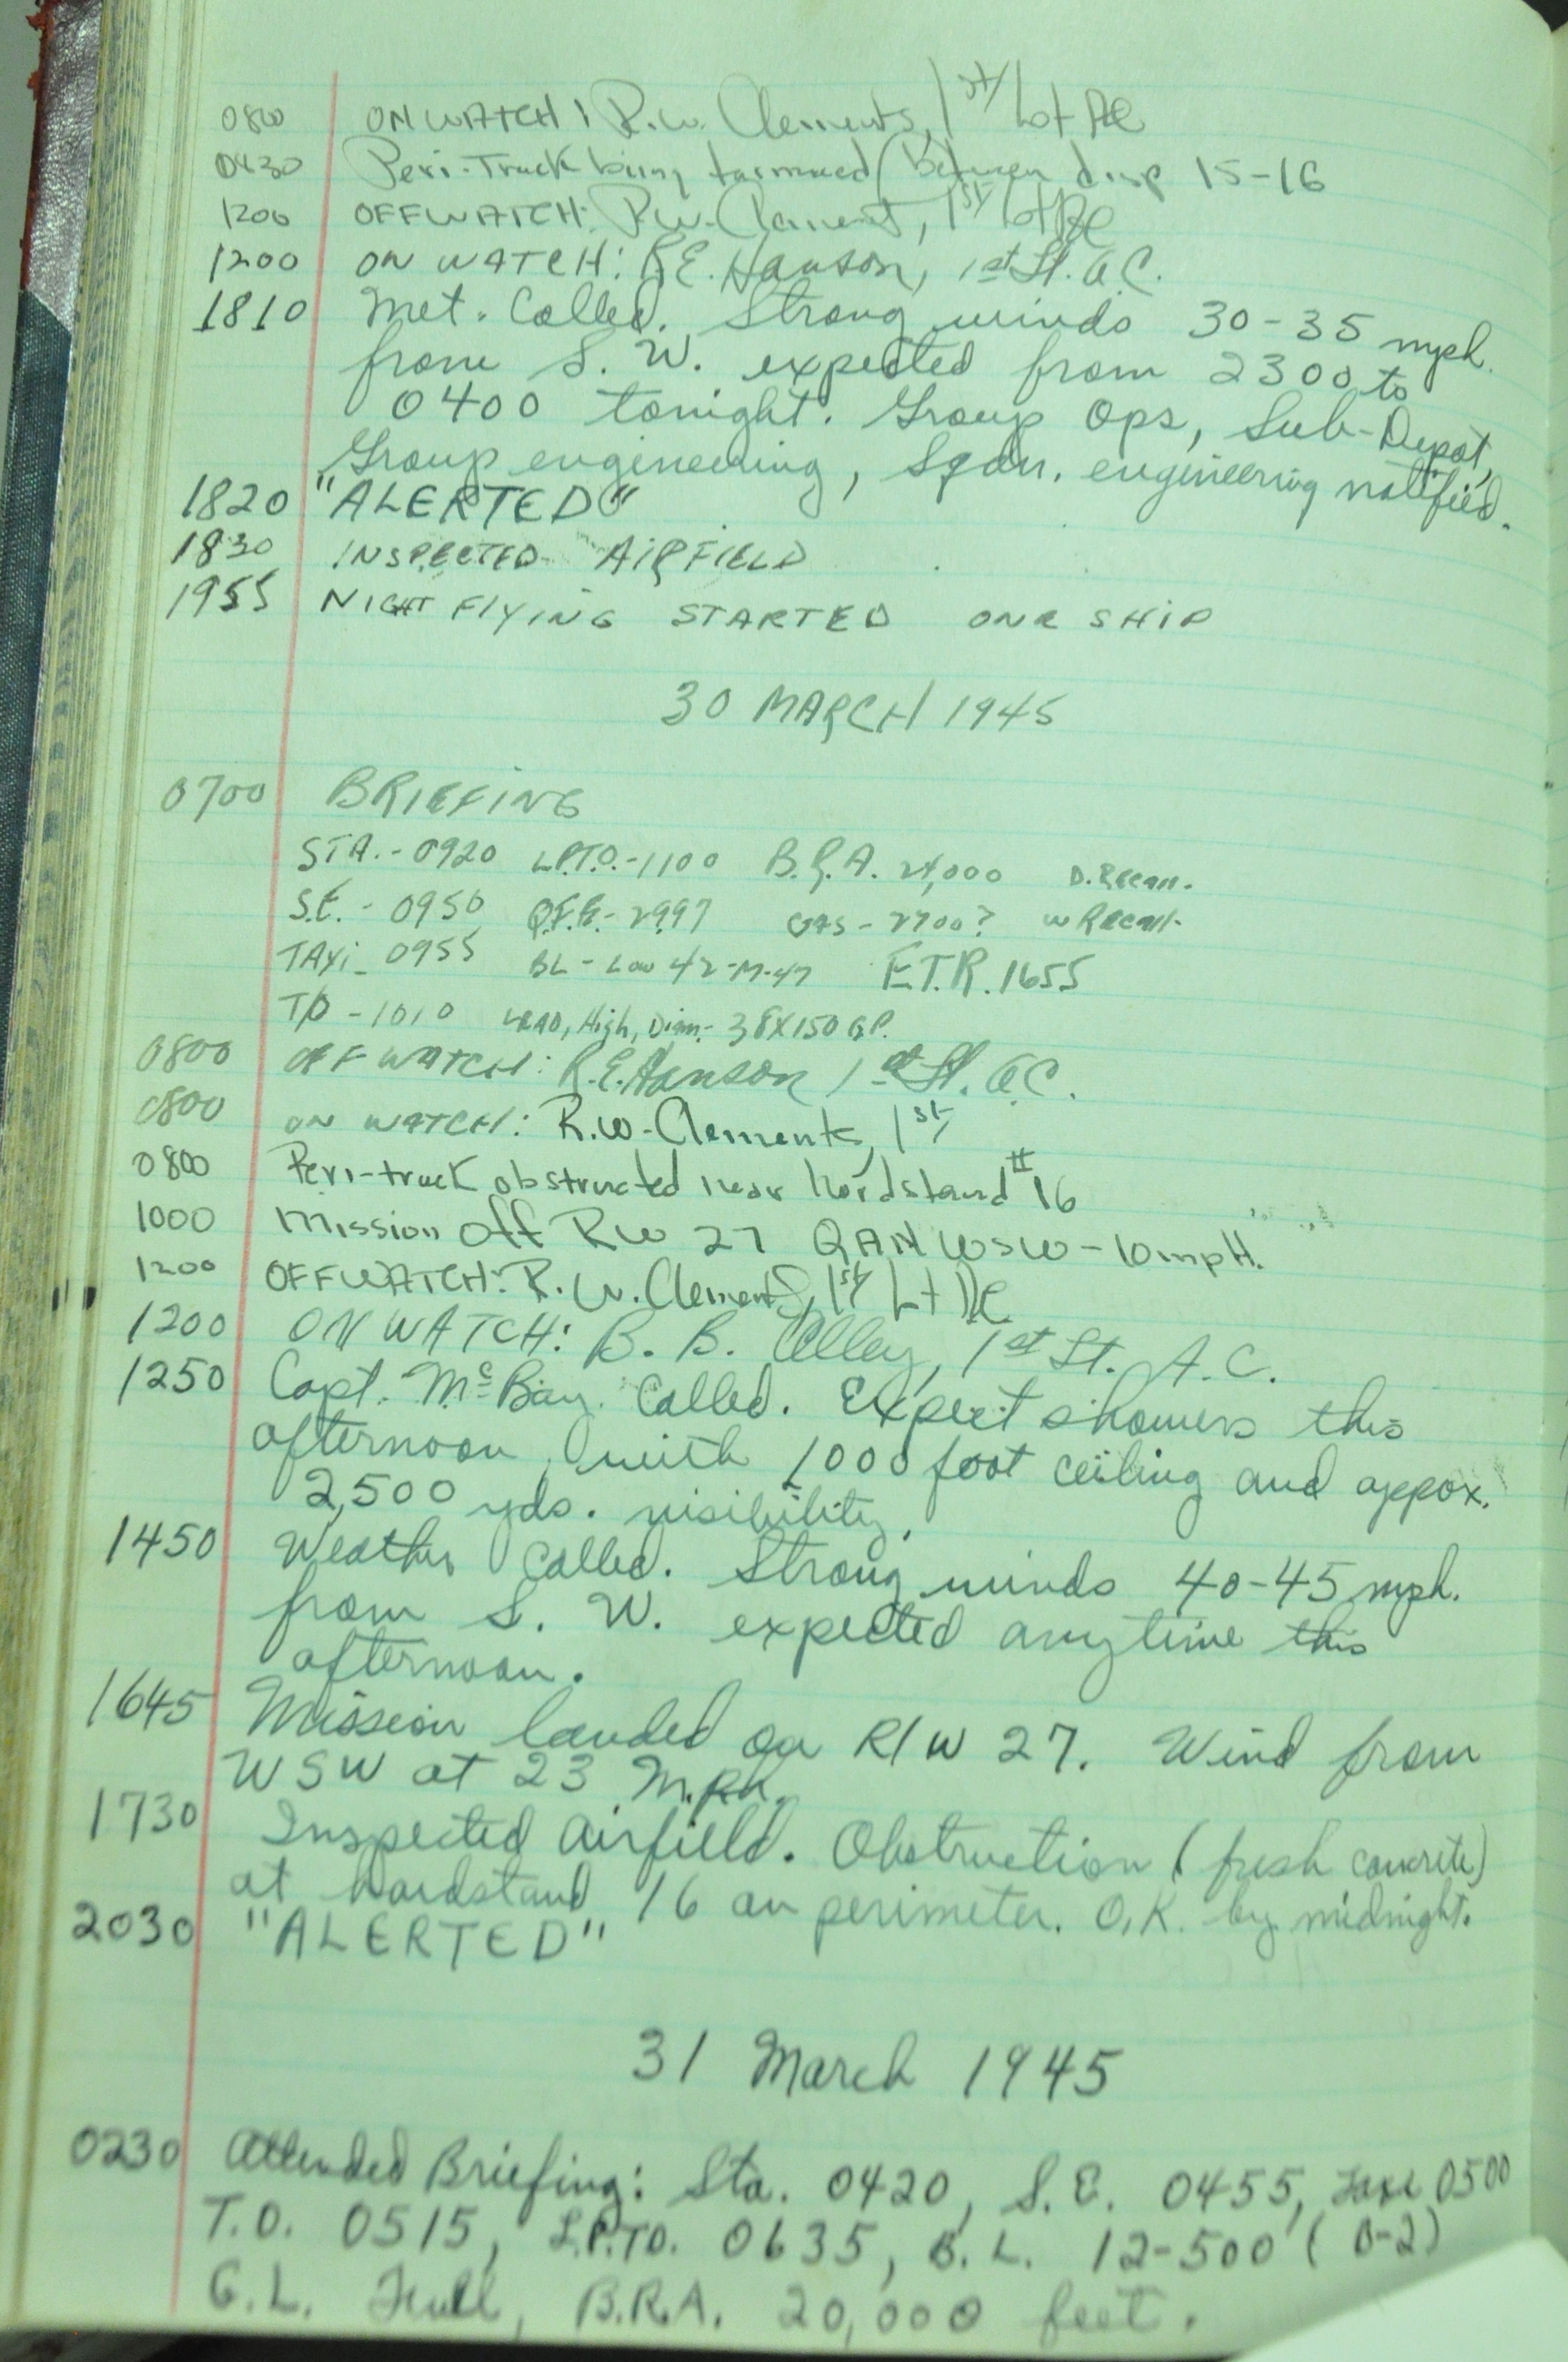 0800 ON WATCH: R.W. Clements, 1st/ Lt AC
0430 Peri-Track being tarmaced (Between disp 15-16
1200 OFFWATCH: R.W. Clement, 1st/ Lt AC
1200 ON WATCH: R.E. Hanson, 1st Lt. A.C.
1810 Met. Called. Strong winds 30-35 mph.
from S. W. expected from 2300 to
0400 tonight. Group Ops, Sub-Depot,
Group engineering, Sqdn. engineering notified.
1820 "ALERTED"
1830 INSPECTED AIRFIELD
1955 NIGHT FLYING STARTED ONE SHIP
30 MARCH 1945
0700 BRIEFING
STA. - 0920 L.P.T.O. - 1100 B.R.A. 24,000 D. Recall -
S.E. - 0950 Q.F.E. - 2997 GAS - 2700? W Recall -
TAXI - 0955 BL - Low 42-M-47 E.T.R. 1655
T/O - 1010 LEAD, High, Dim. - 38X150 G.P.
0800 OFF WATCH: R.E. Hanson 1st Lt. A.C.
0800 ON WATCH: R.W. Clements, 1st/
0800 Peri-track obstructed near hardstand #16
1000 Mission off RW 27 QAN WSW - 10 mpH.
1200 OFFWATCH: R. W. Clements, 1st/ Lt AC
1200 ON WATCH: B. B. Alley, 1st Lt. A.C.
1250 Capt. McBay. Called. Expect showers this
afternoon, with 1000 foot ceiling and appox.
2,500 yds. visibility.
1450 Weather Called. Strong winds 40-45 mph.
from S. W. expected anytime this
afternoon.
1645 Mission landed on R/W 27. Wind from
WSW at 23 M.P.H.
1730 Inspected airfield. Obstruction (fresh concrete)
at hardstand 16 on perimeter. O.K. by midnight.
2030 "ALERTED"
31 March 1945
0230 Attended Briefing: Sta. 0420, S.E. 0455, Taxi 0500
T.O. 0515, L.P.TO. 0635, B.L. 12-500 (0-2)
G.L. Full, B.R.A. 20,000 feet.